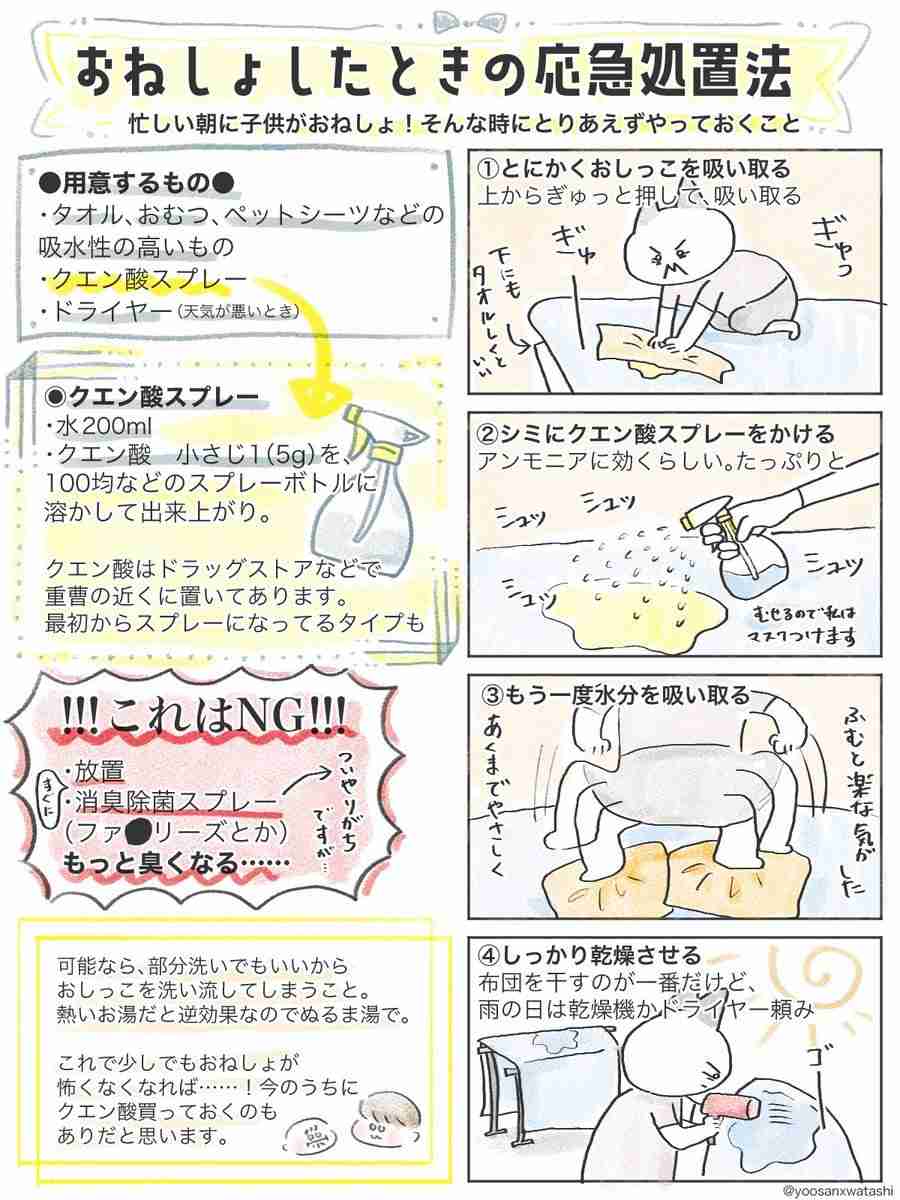 おねしょしたときの応急処置法
忙しい朝に子供がおねしょ！そんな時にとりあえずやっておくこと
●用意するもの●
・タオル、おむつ、ペットシーツなどの
吸水性の高いもの
・クエン酸スプレー
・ドライヤー（天気が悪いとき）
◉クエン酸スプレー
・水200ml
・クエン酸　小さじ1（5g）を、
100均などのスプレーボトルに
溶かして出来上がり。
クエン酸はドラッグストアなどで
重曹の近くに置いてあります。
最初からスプレーになってるタイプも
!!!これはNG!!!
・放置
すぐに
・消臭除菌スプレー
（ファ●リーズとか）
もっと臭くなる……
ついやりがち
ですが…
可能なら、部分洗いでもいいから
おしっこを洗い流してしまうこと。
熱いお湯だと逆効果なのでぬるま湯で。
これで少しでもおねしょが
怖くなくなれば……！今のうちに
クエン酸買っておくのも
ありだと思います。
①とにかくおしっこを吸い取る
上からぎゅっと押して、吸い取る
ギュッ
ギゅ
下にも
タオルしくと
いい
②シミにクエン酸スプレーをかける
アンモニアに効くらしい。たっぷりと
シュッ
シュッ
シュッ
シュッ
むせるので私は
マスクつけます
③もう一度水分を吸い取る
ふむと楽な気がした
あくまでやさしく
④しっかり乾燥させる
布団を干すのが一番だけど、
雨の日は乾燥機かドライヤー頼み
ゴー
@yoosanxwatashi